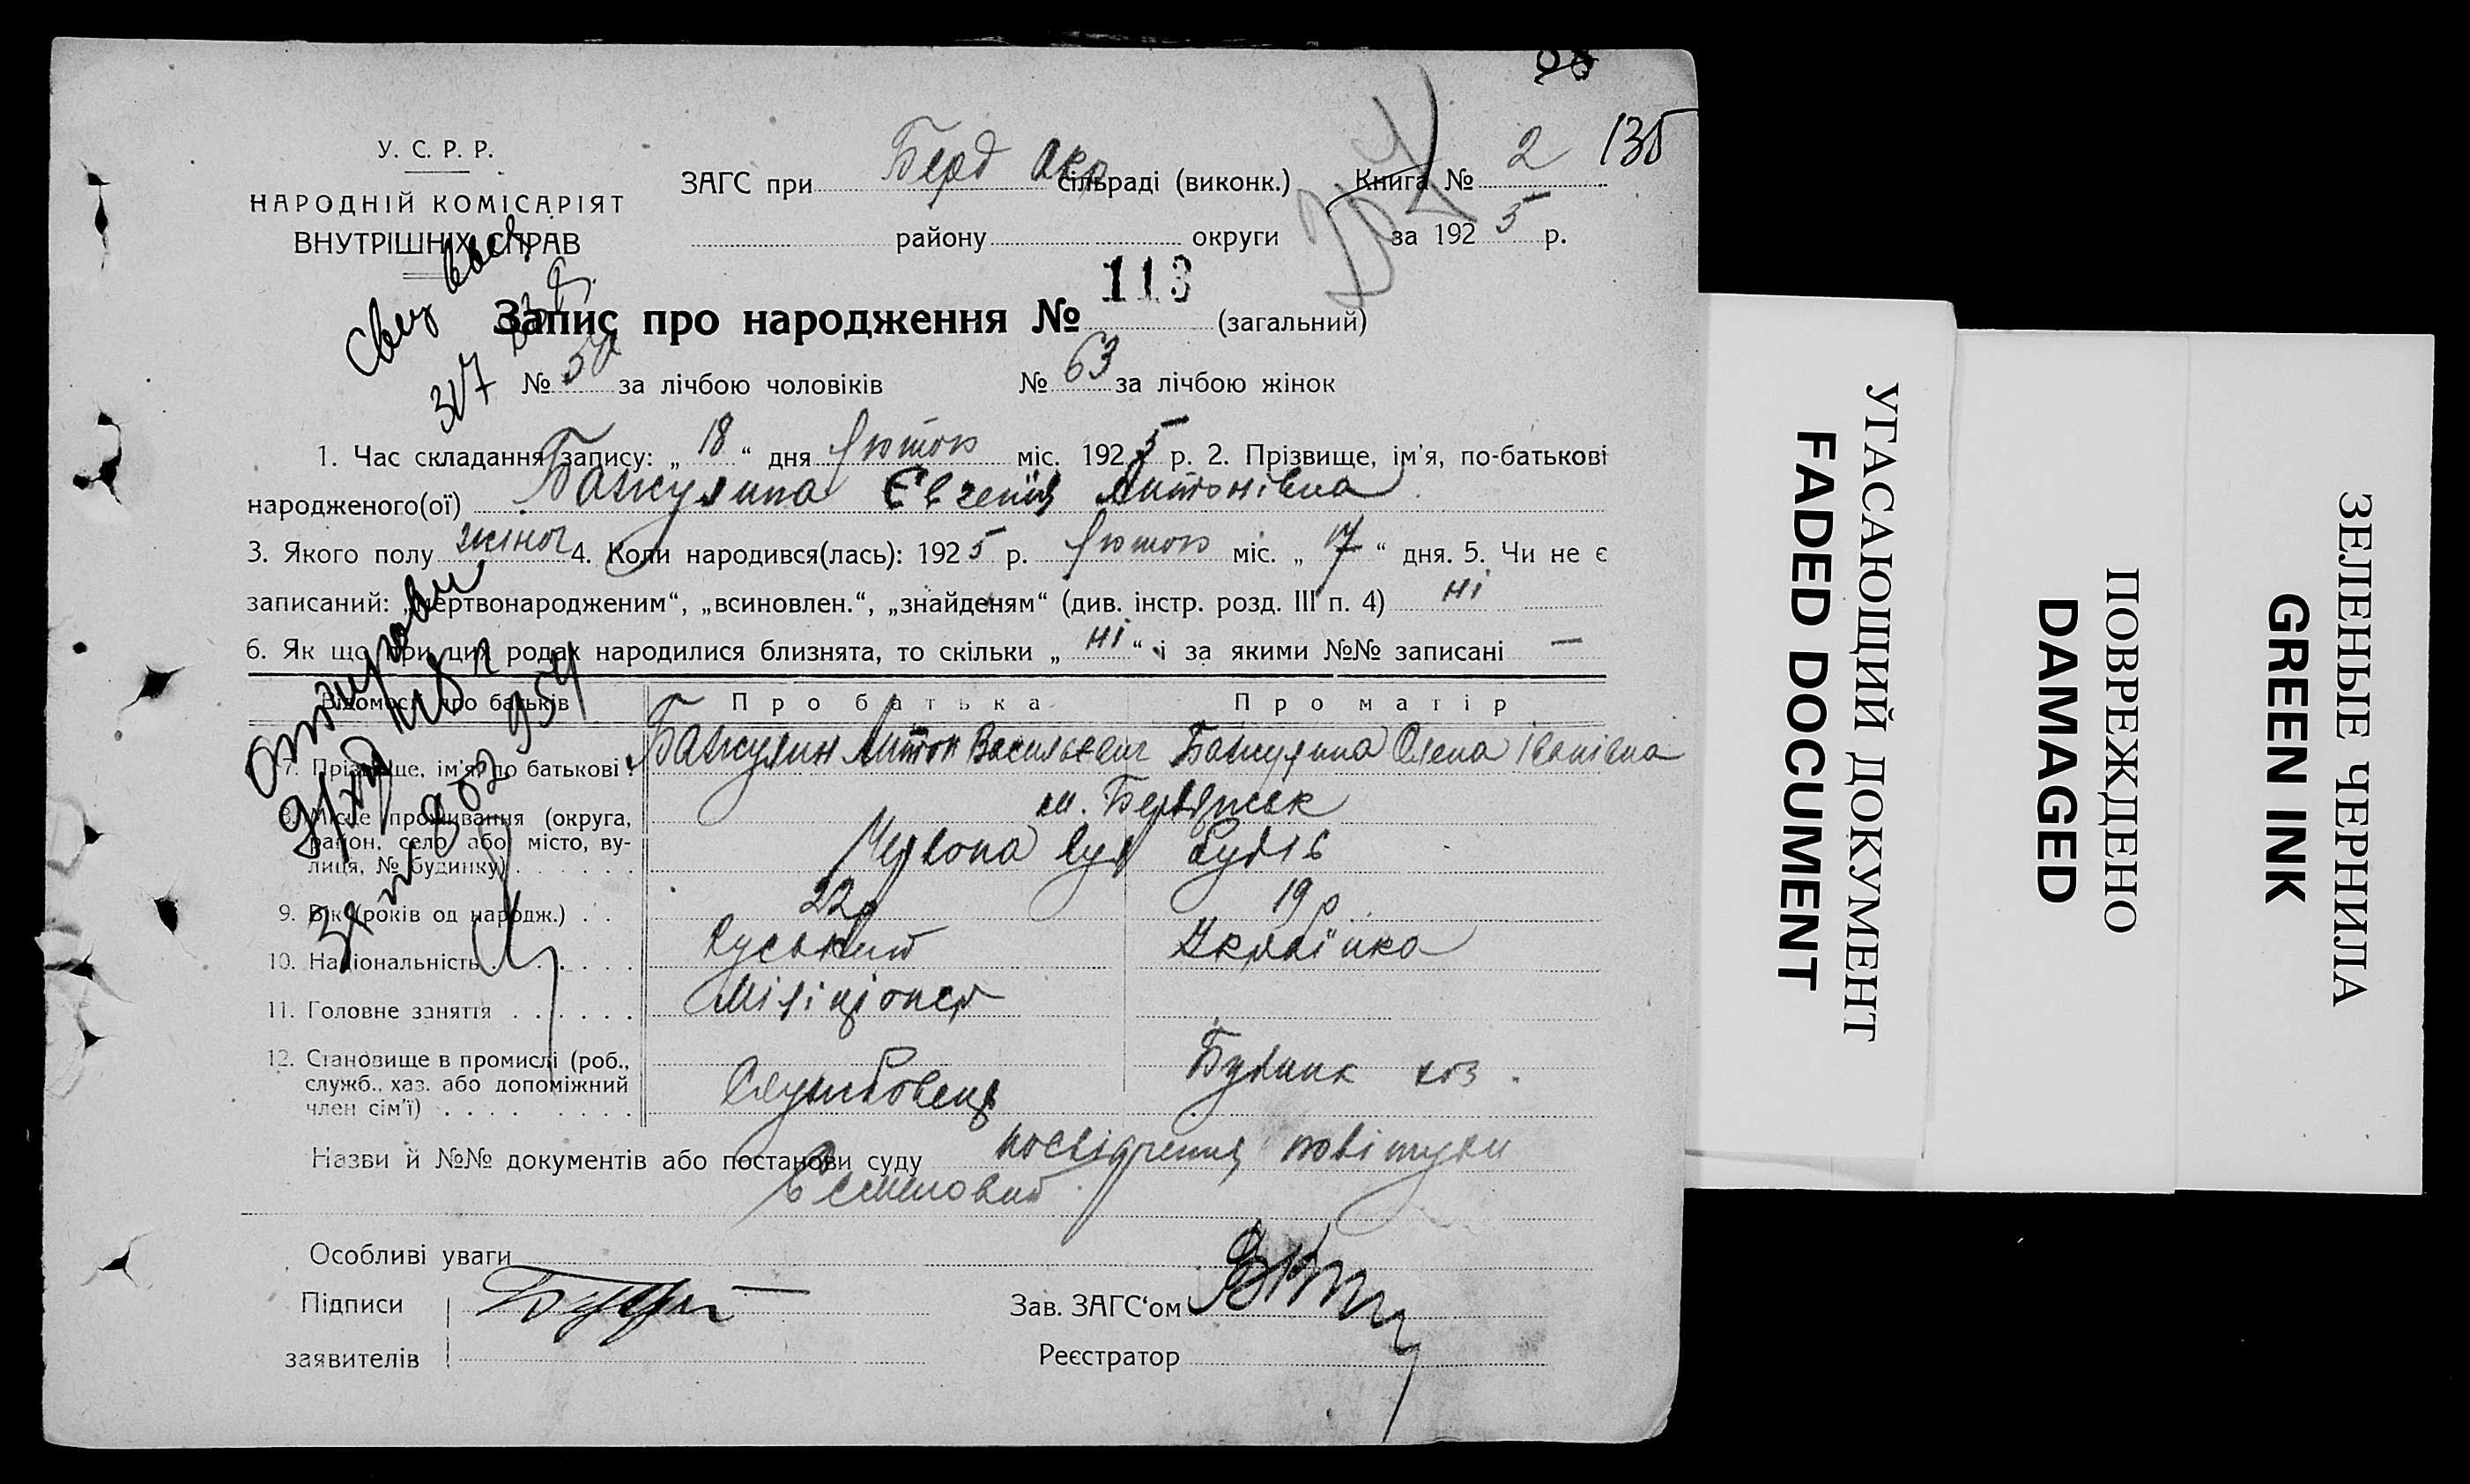 135
У. С. Р. Р.
НАРОДНІЙ КОМІСАРІЯТ
ВНУТРІШНІХ СПРАВ
ЗАГС при Берд Окр сільраді (виконк.) Книга № 2
району округи за 1925 р.
Запис про народження № 113 (загальний)
№ за лічбою чоловіків № 63 за лічбою жінок
1. Час складання запису: „ 18 “ дня Лютого міс. 1925 р. 2. Прізвище, ім'я, по-батькові
народженого(ої) Бажулина Євгенія Антонівна
3. Якого полу жіноч 4. Коли народився(лась): 1925 р. Лютого міс. „ 17 “ дня. 5. Чи не є
записаний: „мертвонародженим“, „всиновлен.“, „знайденям“ (див. інстр. розд. III п. 4) ні
6. Як що при цих родах народилися близнята, то скільки „ ні “ і за якими №№ записані —
Відомості про батьків Про батька Про матір
7. Прізвище, ім'я, по батькові: Бажулин Антон Васильевич Бажулина Олена Іванівна
8. Місце проживання (округа, район, село або місто, вулиця, № будинку) м. Бердянськ
Червона вул
9. Вік (років од народж.) 22 р 19 р
10. Національність Руський Українка
11. Головне заняття Міліціонер
12. Становище в промислі (роб., служб., хаз. або допоміжний член сім'ї) Службовець Будинк хоз.
Назви й №№ документів або постанови суду посвідчення повітухи
Особливі уваги
Підписи
заявителів
Зав. ЗАГС‘ом
Реєстратор
УГАСАЮЩИЙ ДОКУМЕНТ
FADED DOCUMENT
ПОВРЕЖДЕНО
DAMAGED
ЗЕЛЕНЫЕ ЧЕРНИЛА
GREEN INK